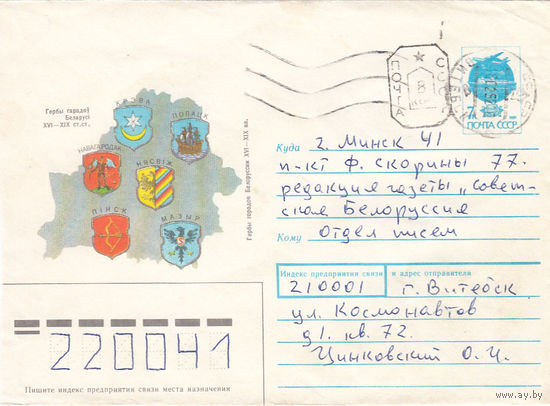 Гербы гарадоў
Беларусі
XVI—XIX ст.ст.
КРЭВА
ПОЛАЦК
НАВАГОРОДАК
НЯСВІЖ
ПІНСК
МАЗЫР
Гербы городов Белоруссии XVI—XIX вв.
ПОЧТА СССР
Куда г. Минск 41
п-кт Ф. Скорины 77.
редакция газеты „Совет-
ская Белоруссия
Кому Отдел писем
Индекс предприятия связи и адрес отправителя
210001 г. Витебск
ул. Космонавтов
д1. кв. 72.
Цинковский О. И.
220041
Пишите индекс предприятия связи места назначения
www.ay.by